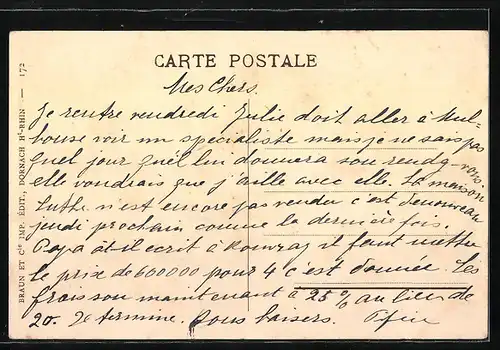 CARTE POSTALE
Mes Chers.
Je rentre vendredi Julie doit aller à Mul-
house voir un spécialiste mais je ne sais pas
quel jour qu'el lui donnera son rendez-vous.
elle voudrais que j'aille avec elle. La maison
Luthi n'est encore pas vendu c'est de nouveau
jeudi prochain comme la dernière fois.
Papa at-il ecrit à il faut mettre
le prix de 600000 pour 4 c'est donnée. Les
frais son maintenant à 25 % au lieu de
20. Je termine. Bons baisers.
BRAUN ET Cie IMP. ÉDIT., DORNACH Ht-RHIN — 172